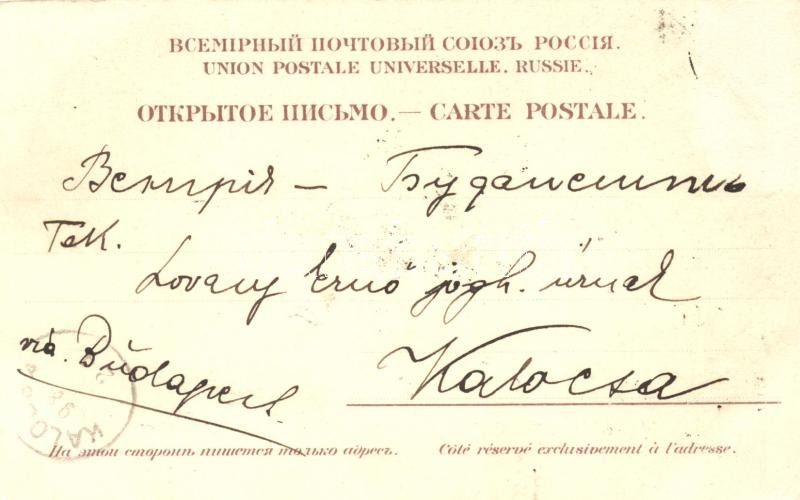 ВСЕМІРНЫЙ ПОЧТОВЫЙ СОЮЗЪ РОССІЯ.
UNION POSTALE UNIVERSELLE. RUSSIE.
ОТКРЫТОЕ ПИСЬМО.— CARTE POSTALE.
Венгрія — Будапештъ
Tek.
Lovany Ernő jogh. úrnak
via. Budapest
Kalocsa
На этой сторонѣ пишется только адресъ. Côté réservé exclusivement à l'adresse.